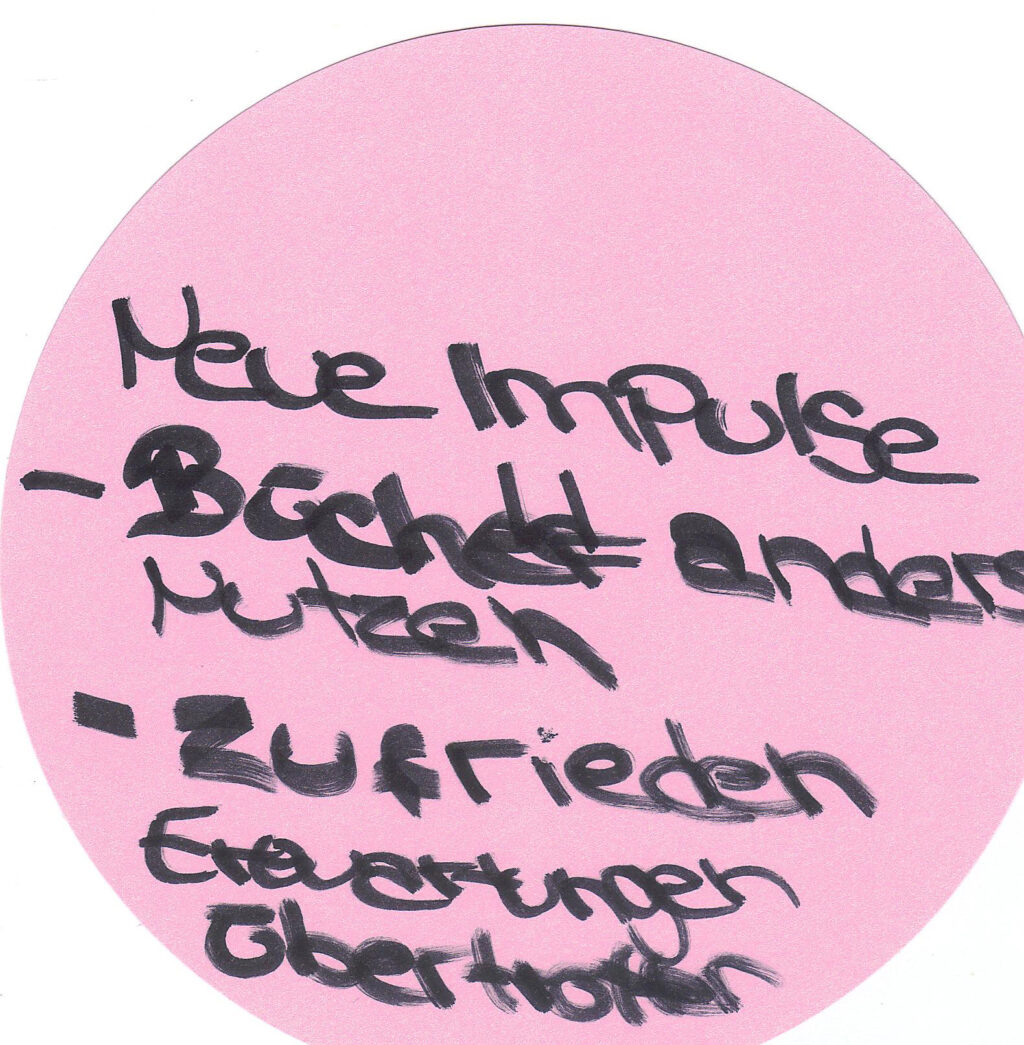 Neue Impulse
- Bücher anders
Nutzen
- Zufrieden
Erwartungen
Übertrofen